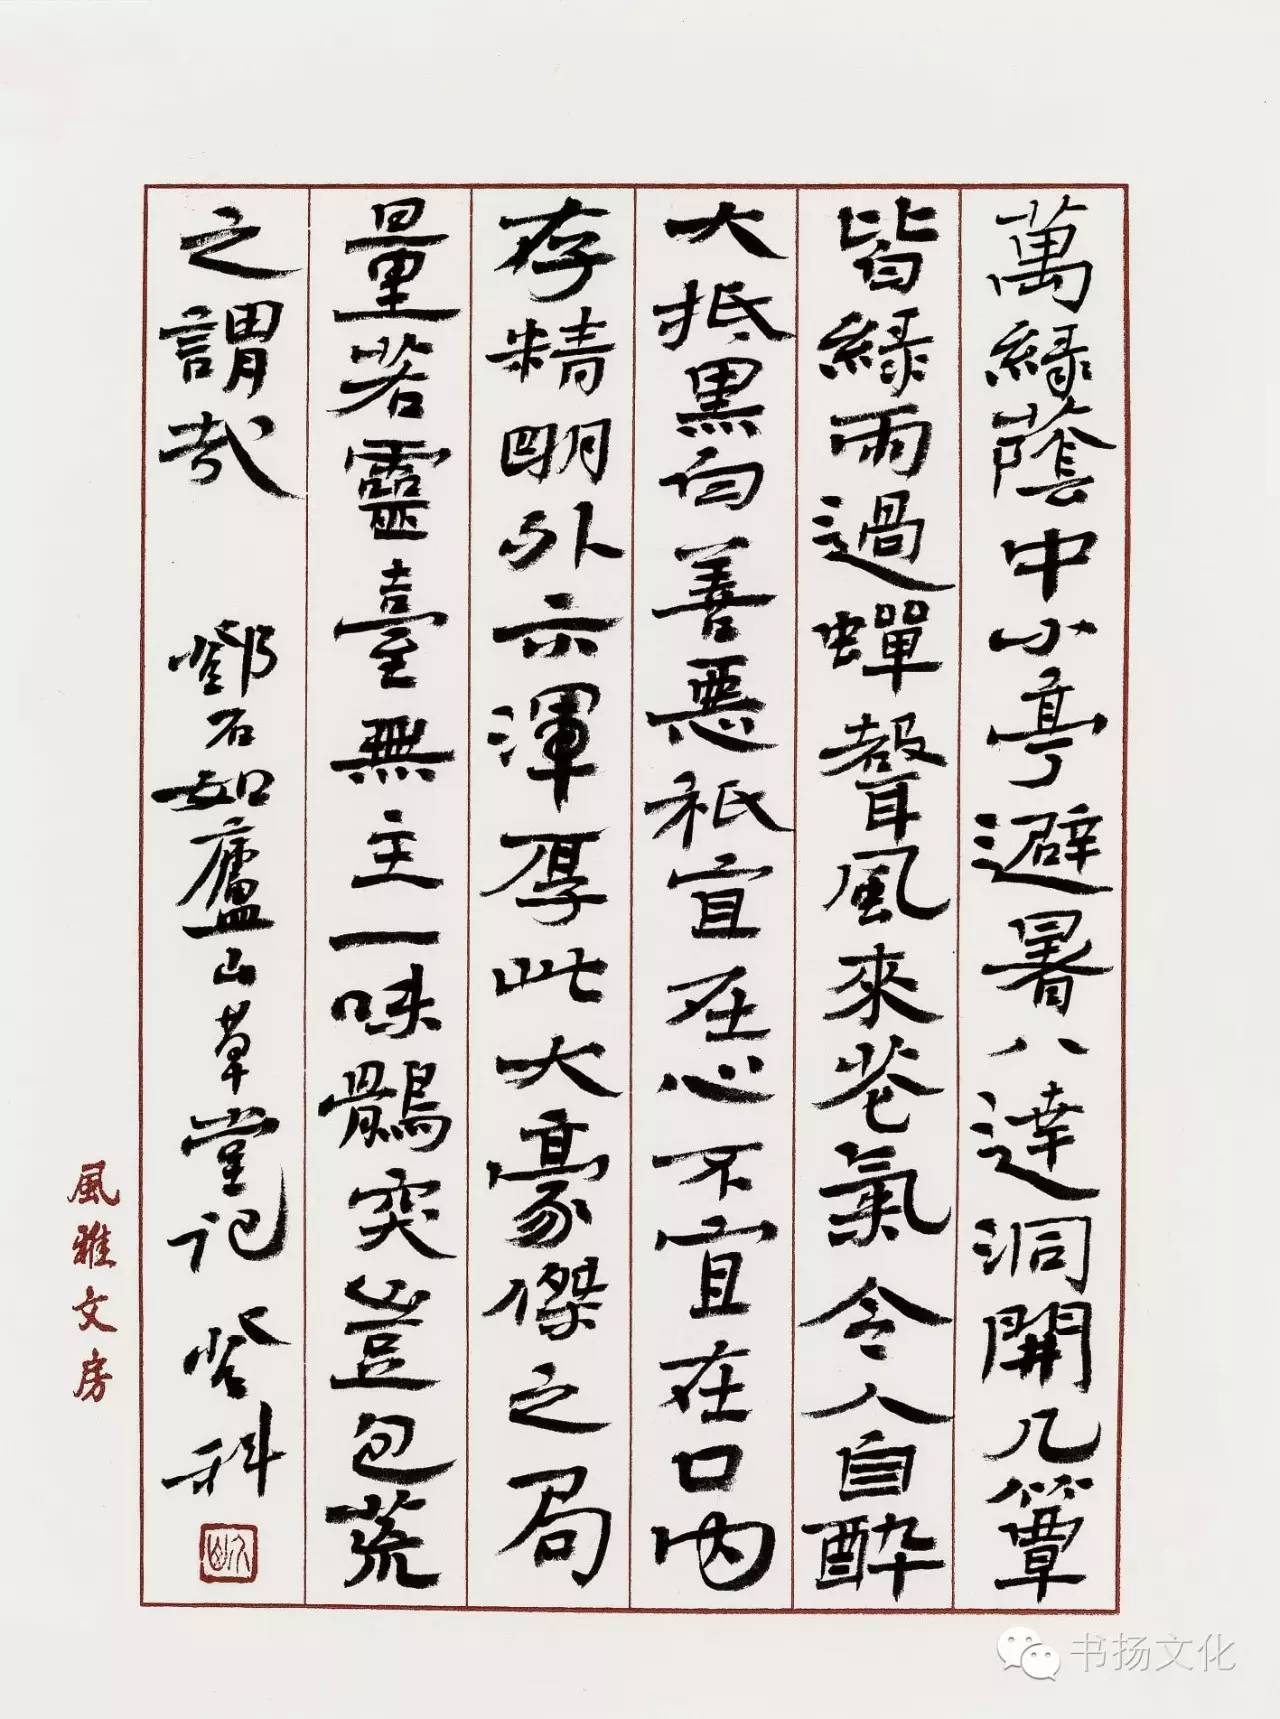 萬綠蔭中小亭避暑八達洞開几簟
皆綠雨過蟬聲風來花氣令人自醉
大抵黑白善惡衹宜在心不宜在口內
存精明外示渾厚此大豪傑之局
量若靈臺無主一味鶻突豈包荒
之謂哉 鄧石如廬山草堂記 登科
風雅文房
书扬文化